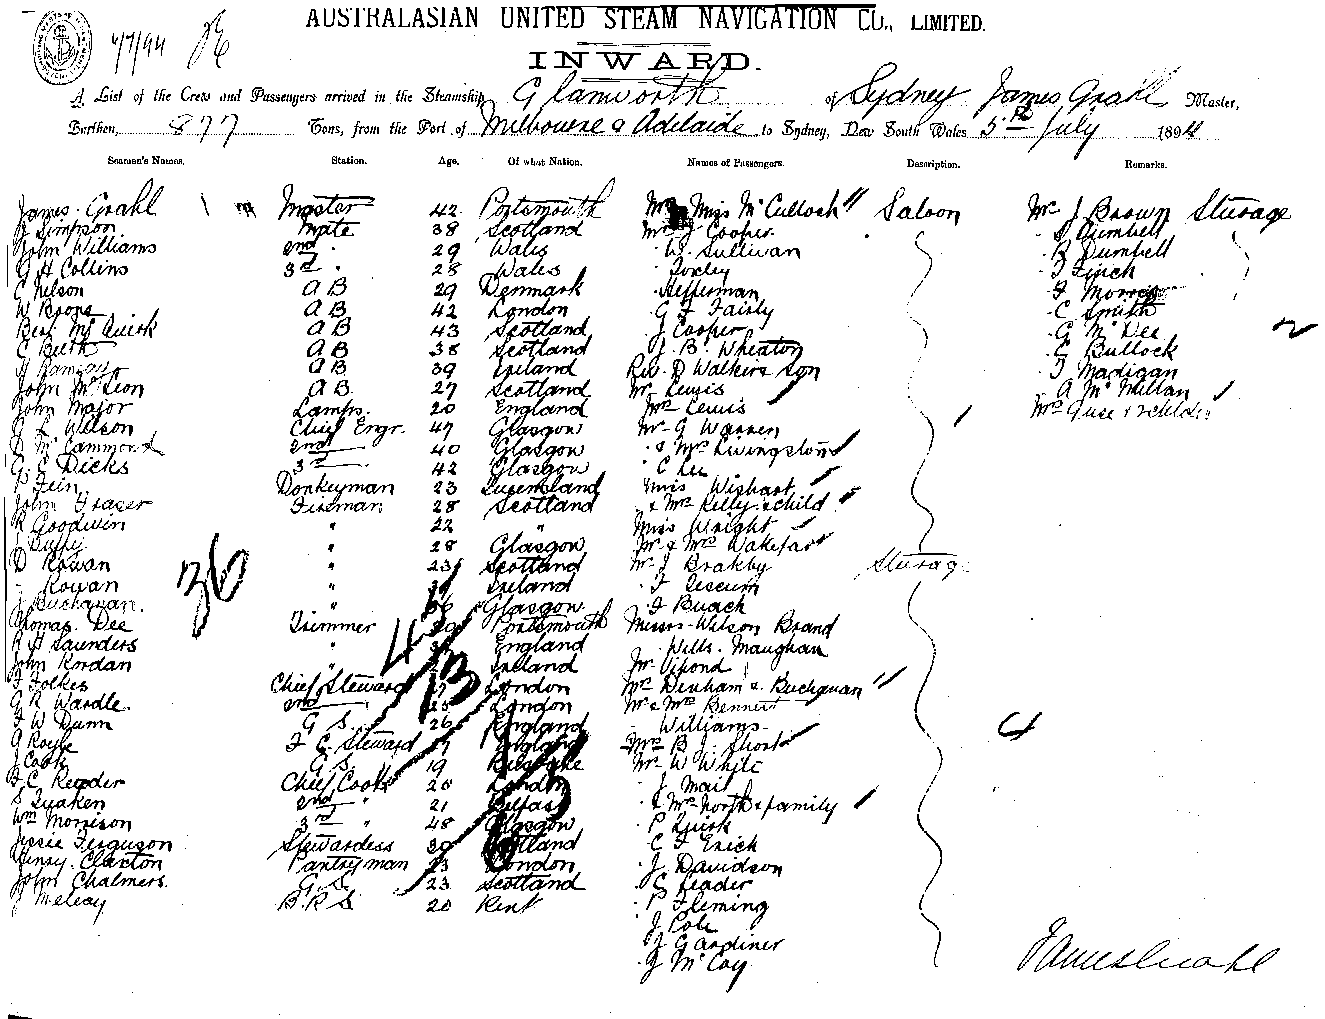 AUSTRALASIAN UNITED STEAM NAVIGATION CO., LIMITED.
4/7/94
INWARD.
A List of the Crew and Passengers arrived in the Steamship Glanworth of Sydney James Grahl Master,
Burthen, 877 Tons, from the Port of Melbourne & Adelaide to Sydney, New South Wales 5th July 1894
Seamen's Names. Station. Age. Of what Nation. Names of Passengers. Description. Remarks.
James Grahl Master 42 Portsmouth Miss McCulloch Saloon Mr J Brown Sturage
Simpson Mate 38 Scotland Mr J Cooper Dumbell
John Williams 2nd 29 Wales W. Sullivan Dumbell
G H Collins 3rd 28 Wales Loxley Finch
C Nelson AB 29 Denmark Hefferman Morris
W Broons AB 42 London G F Fairly C Smith
Bert McQuirk AB 43 Scotland J Cooper G McDee
C Beith AB 38 Scotland J. B. Wheaton C Bullock
Ramsay AB 39 Ireland Rev. D Walker & Son Madigan
John McLeon AB 27 Scotland Mr Lewis A McMillan
John Major Lamps. 20 England Mrs Lewis Mrs Guse & 2 childn
G L Wilson Chief Engr. 47 Glasgow Mr G Warren
McCammond 2nd 40 Glasgow & Mrs Livingston
G. C Dicks 3rd 42 Glasgow C Lee
Fein Donkeyman 23 Queensland Miss Wishart
John Frazer Fireman 28 Scotland & Mrs Kelly & child
R Goodwin " 22 " Miss Wright
Duffy " 28 Glasgow Mr & Mrs Wakefar
D Rowan " 23 Scotland Mr J Brakby Sturage
Rowan " Ireland
J Buchanan " Glasgow F Buach
Thomas Dee Trimmer Portsmouth Messrs Wilson Brand
R H Saunders " England Wells. Maughan
John Rordan " Ireland Mr Vipond
F Folkes Chief Steward London Mrs Denham & Buchanan
G R Wardle 2nd 25 London Mr & Mrs Bennett
F W Dunn G. S. 26 England Williams
G Royle F C. Steward England Mrs B J. Short
J Cook G. S. 19 Mr W White
F C Reader Chief Cook 20 London J Mail
S Quaken 2nd " 21 Belfast & Mrs North & family
Wm Morrison 3rd " 48 Glasgow P Quirk
Jessie Ferguson Stewardess 30 Scotland C F Erich
Henry Claxton Pantryman 23 London J. Davidson
John Chalmers. G. S. 23 Scotland C Leader
J Meleay B. R S. 20 Kent P Fleming
J Pole
J Gardiner
J McCoy
36
43
13
2
4
James Grahl